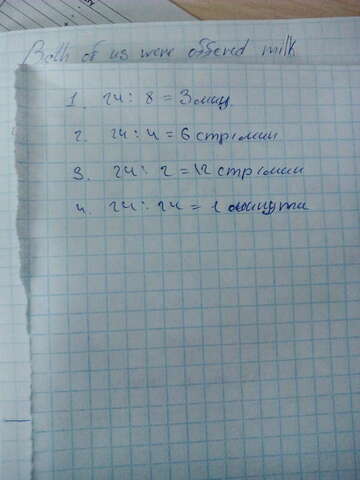 Both of us were offered milk
1. 24 : 8 = 3 мин.
2. 24 : 4 = 6
3. 24 : 2 = 12
4. 24 : 24 = 1 минута